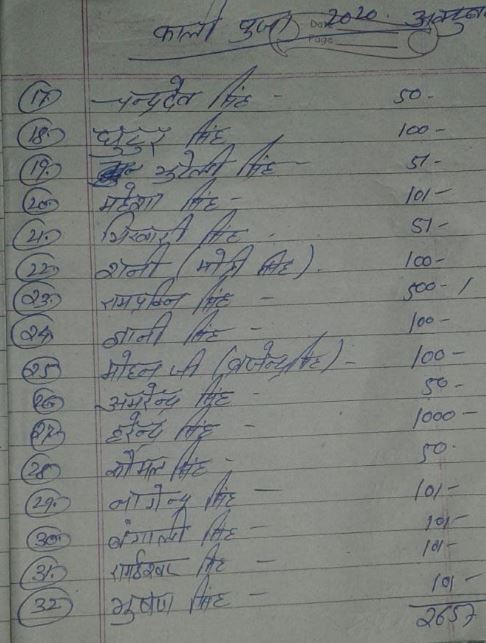 काली पूजा 2020
Date
Page
17 चन्द्रदेव सिंह 50-
18 सिंह 100-
19. सिंह 51-
20 महेश सिंह - 101-
21. भिखारी सिंह - 51-
22 शनी (मोद्री सिंह) 100-
23 सिंह - 500-/
24 ज्ञानी सिंह - 100-
25 मोहन जी (व्रजेन्द्र सिंह) - 100-
26 अमरेन्द्र सिंह - 50-
27 हरेन्द्र सिंह - 1000-
28 कौशल सिंह - 50.
29. नागेन्द्र सिंह - 101-
30. बंगाली सिंह - 101-
31. सिंह - 101-
32 भुषण सिंह - 101-
2657